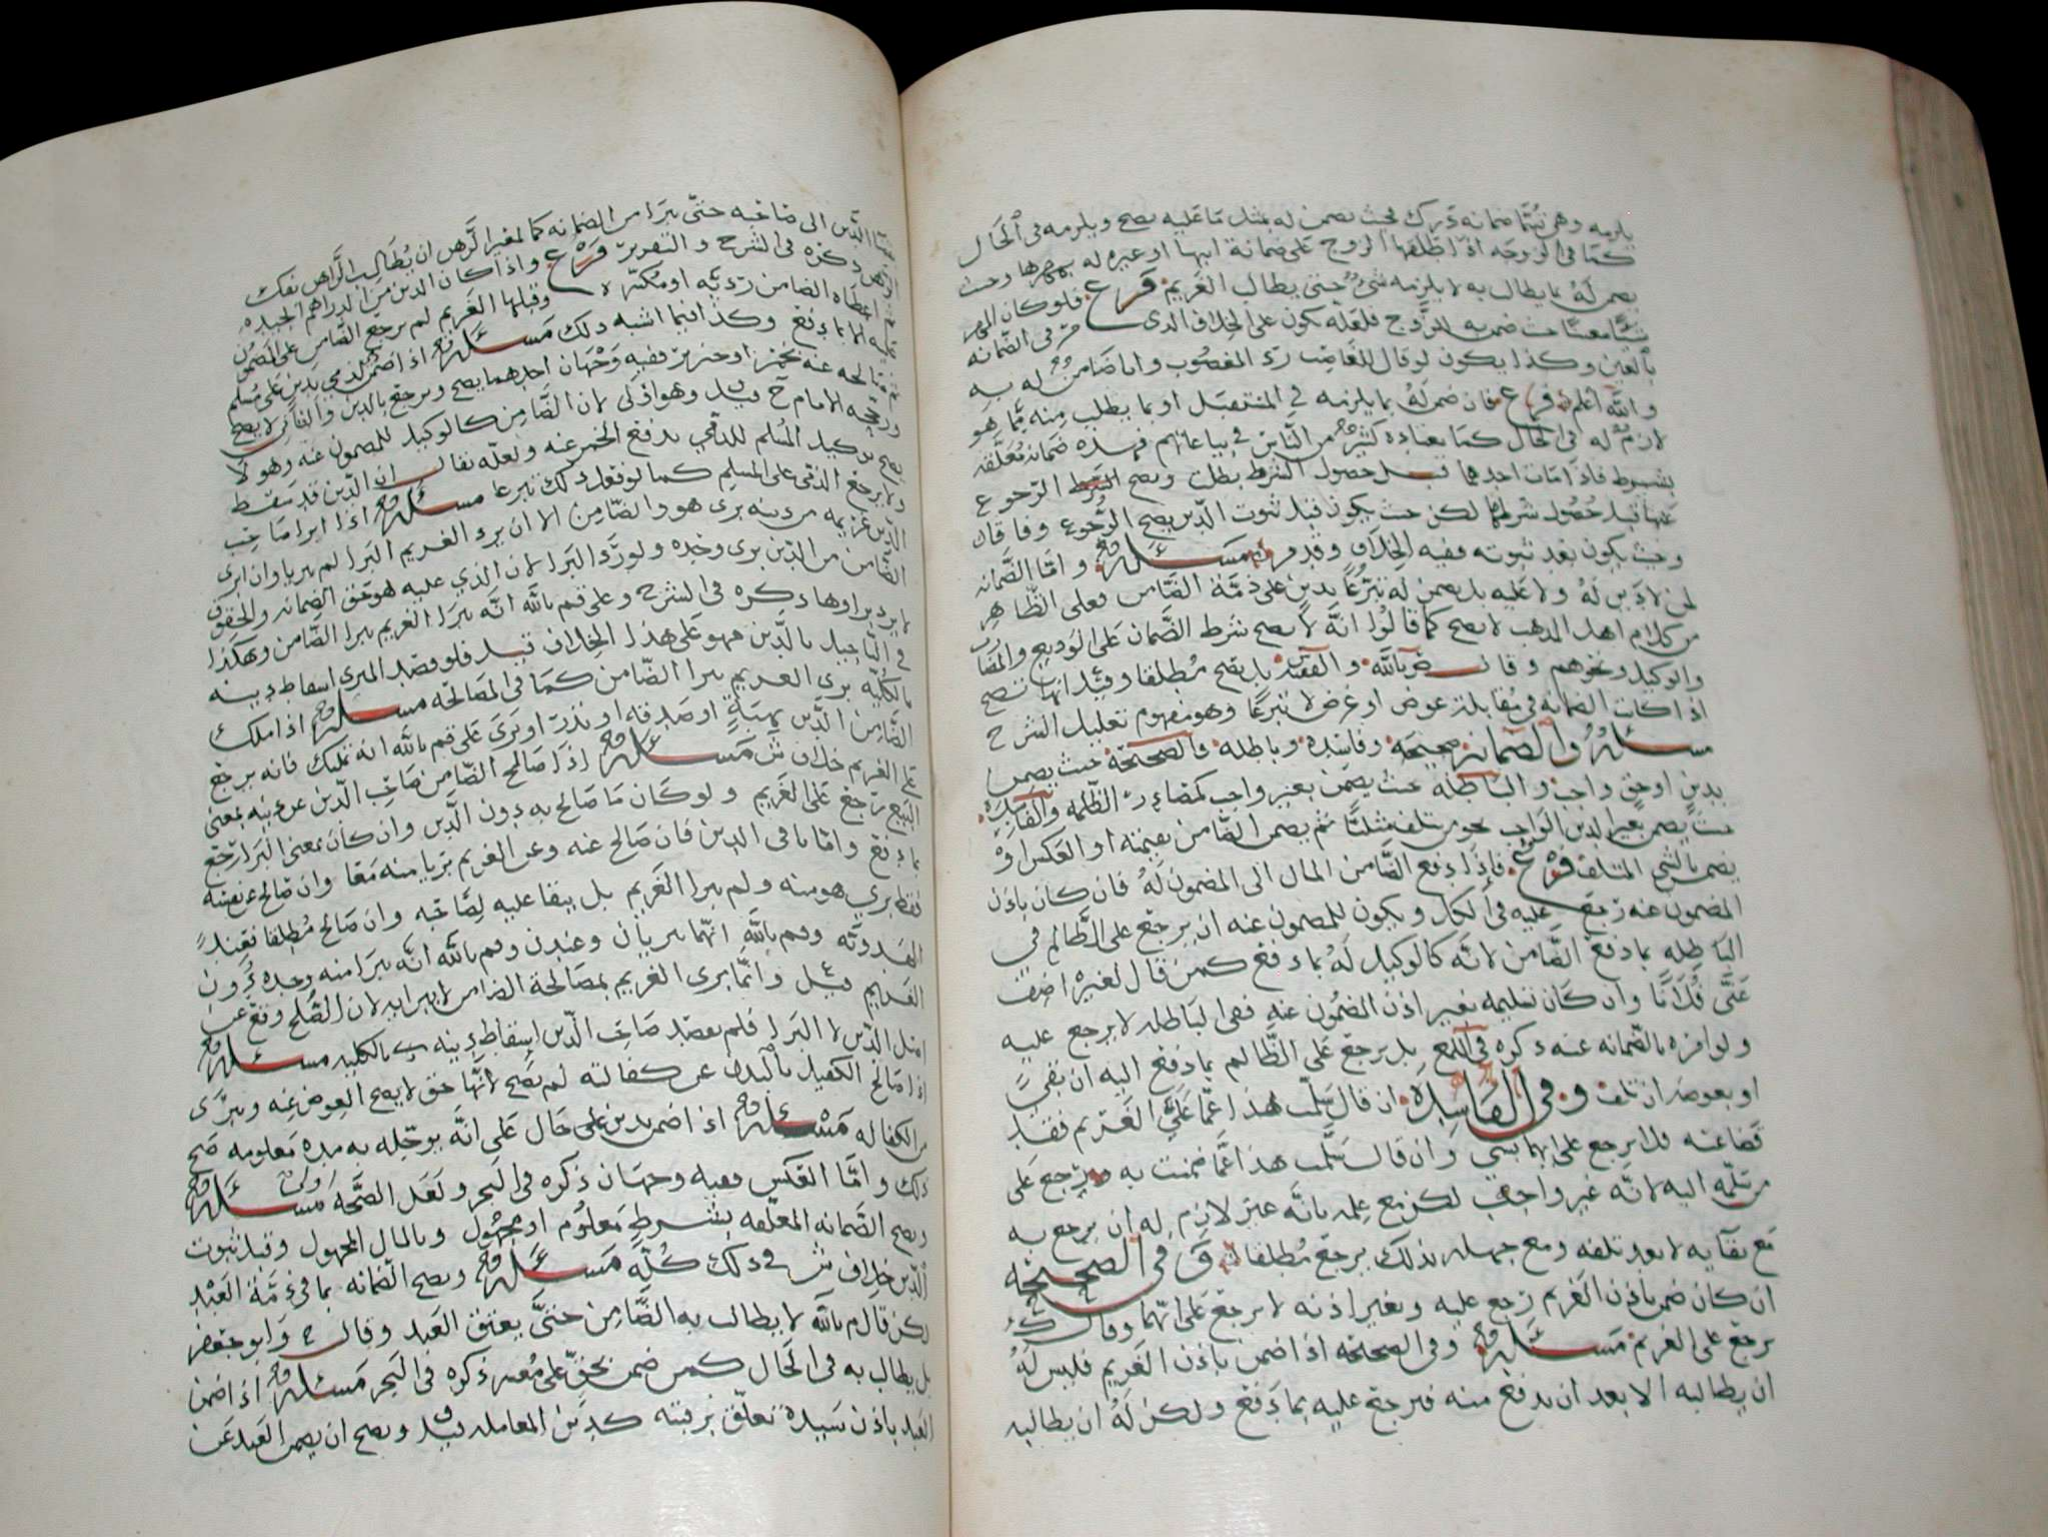 يلزمه وهي تسما ضمانه درك بحيث يضمن له بمثل ما عليه يصح ويلزمه في الحال
كما في الزوجه اذا طلقها الزوج على ضمانة ابيها او غيره له بمهرها وحيث
يضمن له بما يطالب به لا يلزمه شيء حتى يطالب الغريم فرع فلو كان المهر
شيئا معينا ضمن به للزوج فلعله يكون على الخلاف الذي مر في الضمانه
بالعين وكذا يكون لو قال للغاصب رد المغصوب وانا ضامن له به
والله اعلم فرع فان ضمن له بما يلزمه في المستقبل او بما يطلب منه مما هو
لازم له في الحال كما يعتاده كثير من الناس في بياعاتهم فهذه ضمانه معلقه
بشرط فاذا مات احدهما قبل حصول الشرط بطلت ويصح الرجوع
عنها قبل حصول شرطها لكن حيث يكون قبل ثبوت الدين يصح الرجوع وفاقا
وحيث يكون بعد ثبوته ففيه الخلاف وقد مر مسئله واما الضمانه
لمن لا دين له ولا عليه بل يضمن له تبرعا بدين على ذمة الضامن فعلى الظاهر
من كلام اهل المذهب لا يصح كما قالوا انه لا يصح شرط الضمان على الوديع والمضارب
والوكيل ونحوهم وقال م بالله والفقيه بل يصح مطلقا وقيل انها تصح
اذا كانت الضمانه في مقابلة عوض او غرض لا تبرعا وهو مفهوم تعليل الشرح
مسئله والضمانه صحيحه وفاسده وباطله فالصحيحة حيث يضمن
بدين او حق واجب والباطله حيث يضمن بغير واجب والفاسده
حيث يضمن بغير الدين الواجب نحو من تلف مثليا ثم يضمن الضامن بقيمته او العكس او
يضمن بالشي المتلف فرع فاذا دفع الضامن المال الى المضمون له فان كان باذن
المضمون عنه رجع عليه في الكل ويكون للمضمون عنه ان يرجع على الظالم في
الباطله بما دفع الضامن لانه كالوكيل له بما دفع كمن قال لغيره اضف
عني فلانا وان كان تسليمه بغير اذن المضمون عنه ففي الباطله لا يرجع عليه
ولو امره بالضمانه عنه ذكره في اللمع بل يرجع على الظالم بما دفع اليه ان بقي
او بعوضه ان تلف وفي الفاسده ان قال سلمت هذا عما على الغريم فقد
قضا عنه فلا يرجع على ايهما بشي وان قال سلمت هذا عما ضمنت به رجع على
من سلمه اليه لانه غير واجب لكن مع علمه بانه غير لازم له ان يرجع به
مع بقائه لا بعد تلفه ومع جهله بذلك يرجع مطلقا وفي الصحيحه
ان كان ضمن باذن الغريم رجع عليه وبغير اذنه لا يرجع على ايهما وقال ك
يرجع على الغريم مسئله وفي الصحيحه اذا ضمن باذن الغريم فليس له
ان يطالبه الا بعد ان يدفع عنه فيرجع عليه بما دفع ولكن له ان يطالبه
الدين الى صاحبه حتى يبرا من الضمانه كما لمعير الرهن ان يطالب الراهن بفك
الرهن ذكره في الشرح والتقرير فرع واذا كان الدين من الدراهم الجيده
اعطاه الضامن رديه او مكسره وقبلها الغريم لم يرجع الضامن على المضمون
عنه الا بما دفع وكذا فيما اشبه ذلك مسئله اذا ضمن الذمي بدين على مسلم
صالحه عنه بخمر او خنزير ففيه وجهان احدهما يصح ويرجع بالدين والثاني لا يصح
ورجحه الامام ح وقيل وهو اولى لان الضامن كالوكيل للمضمون عنه وهو لا
يصح توكيل المسلم للذمي بدفع الخمر عنه ولعله يقال ان الدين قد سقط
ولا يرجع الذمي على المسلم كما لو فعل ذلك تبرعا مسئله اذا ابرا صاحب
الدين غريمه من دينه بري هو والضامن الا ان يرد الغريم البرا لم يبريا وان ابرى
الضامن من الدين بري وحده ولو رد البرا لان الذي عليه هو حق الضمانه والحقوق
لا يرد براوها ذكره في الشرح وعلى قم بالله انه يبرا الغريم ببرا الضامن وهكذا
في التاجيل بالدين فهو على هذا الخلاف قيل فلو قصد المبري اسقاط دينه
بالكليه بري الغريم ببرا الضامن كما في المصالحه مسئله اذا ملك
الضامن الدين بهبة او صدقه او نذر او بري على قم بالله انه تمليك فانه يرجع
على الغريم خلاف ش مسئله اذا صالح الضامن صاحب الدين عن دينه بمعنى
البيع رجع على الغريم ولو كان ما صالح به دون الدين وان كان بمعنى البرا رجع
بما دفع واما باقي الدين فان صالح عنه وعن الغريم بريا منه معا وان صالح عن نفسه
فقط بري هو منه ولم يبرا الغريم بل يبقا عليه لصاحبه وان صالح مطلقا فعند
الهدويه وم بالله انهما يبريان وعند ن وقم بالله انه يبرا منه وحده دون
الغريم قيل وانما بري الغريم بمصالحة الضامن لا بابرايه لان الصلح وقع عن
اصل الدين لا البرا فلم يقصد صاحب الدين اسقاط دينه بالكليه مسئله
اذا صالح الكفيل بالبدن عن كفالته لم يصح لانها حق لا يصح العوض عنه ويبرى
من الكفاله مسئله اذا ضمن بدين على حال على انه يوجله به مده معلومه صح
ذلك واما العكس ففيه وجهان ذكره في البحر ولعل الصحة اولى مسئله
ويصح الضمانه المعلقه بشرط معلوم او مجهول وبالمال المجهول وقبل ثبوت
الدين خلاف ش في ذلك كله مسئله ويصح الضمانه بما في ذمة العبد
لكن قال م بالله لا يطالب به الضامن حتى يعتق العبد وقال ح وابو جعفر
بل يطالب به في الحال كمن ضمن بحق على معسر ذكره في البحر مسئله اذا ضمن
العبد باذن سيده تعلق برقبته كدين المعامله قيل ويصح ان يضمن العبد عن